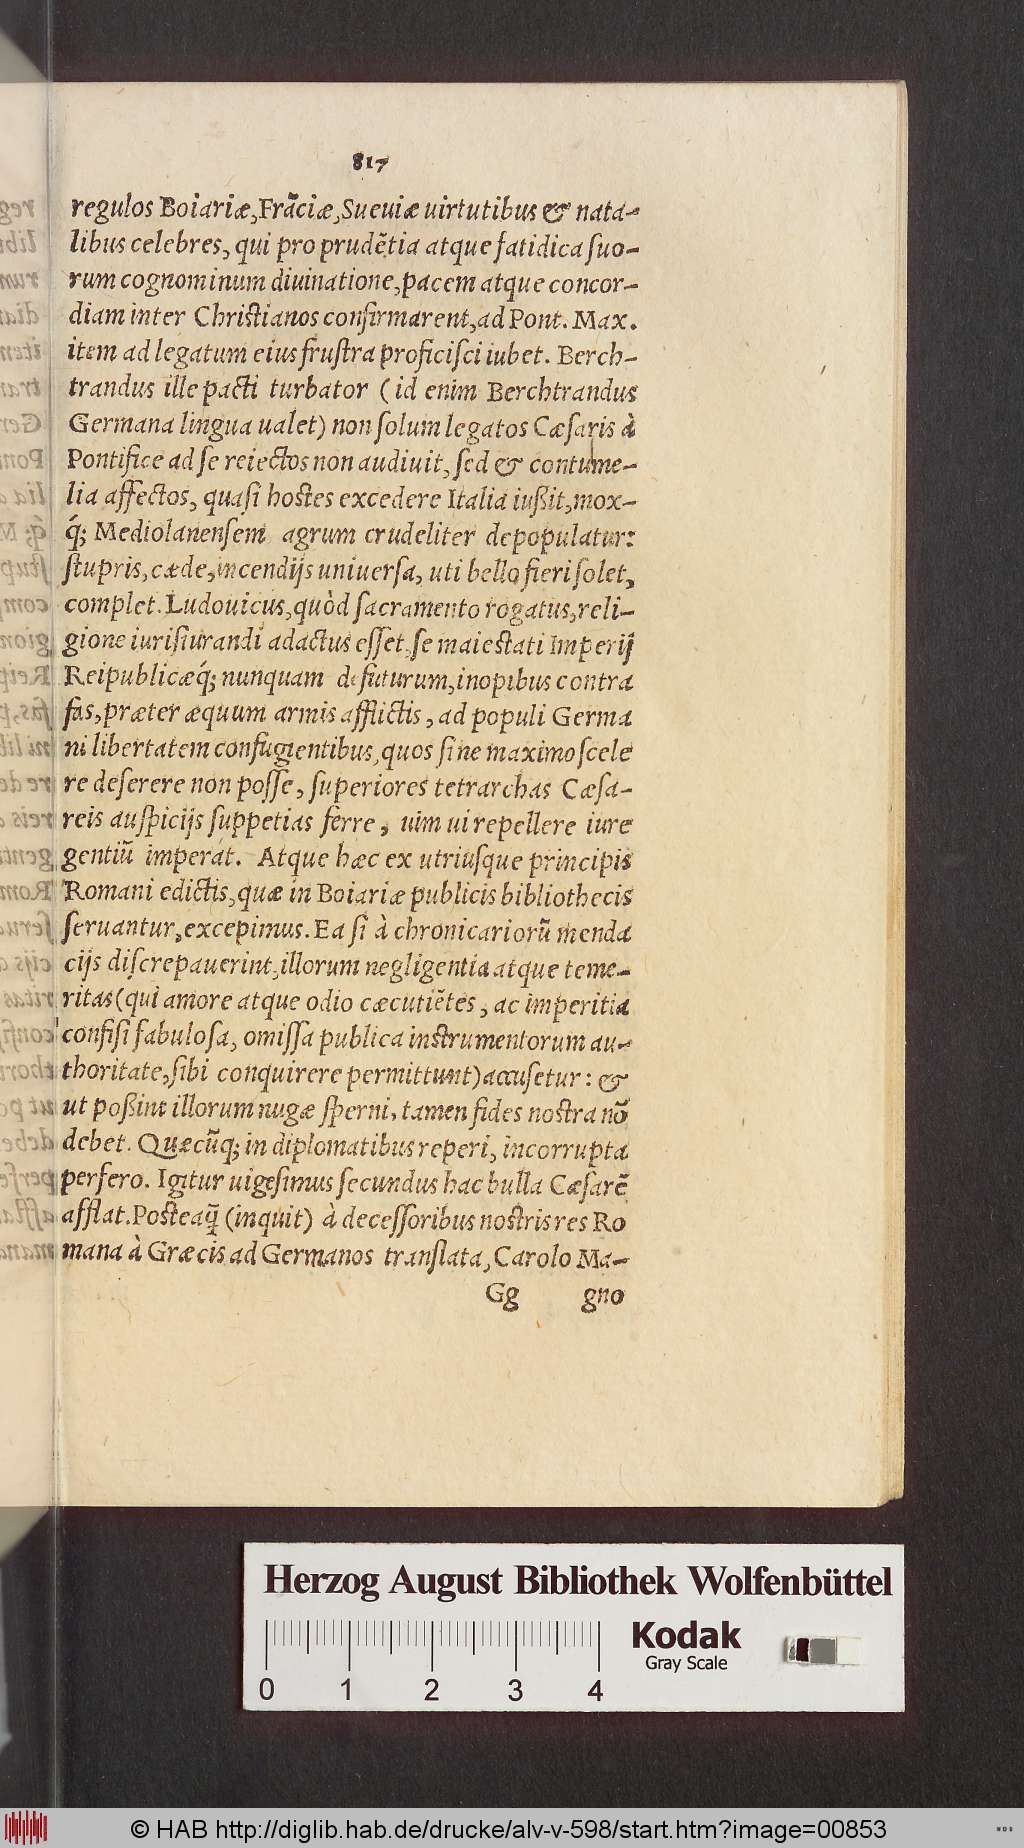 817
regulos Boiariæ, Frãciæ, Sueuiæ uirtutibus & nata-
libus celebres, qui pro prudẽtia atque fatidica ſuo-
rum cognominum diuinatione, pacem atque concor-
diam inter Chriſtianos confirmarent, ad Pont. Max.
item ad legatum eius fruſtra proficiſci iubet. Berch-
trandus ille pacti turbator (id enim Berchtrandus
Germana lingua ualet) non ſolum legatos Cæſaris à
Pontifice ad ſe reiectos non audiuit, ſed & contume-
lia affectos, quaſi hoſtes excedere Italia iußit, mox-
q́; Mediolanenſem agrum crudeliter depopulatur:
ſtupris, cæde, incendijs uniuerſa, uti bello fieri ſolet,
complet. Ludouicus, quòd ſacramento rogatus, reli-
gione iuriſiurandi adactus eſſet, ſe maieſtati Imperij
Reipublicæq́; nunquam defuturum, inopibus contra
fas, præter æquum armis afflictis, ad populi Germa
ni libertatem confugientibus, quos ſine maximo ſcele
re deſerere non poſſe, ſuperiores tetrarchas Cæſa-
reis auſpicijs ſuppetias ferre, uim ui repellere iure
gentiũ imperat. Atque hæc ex utriuſque principis
Romani edictis, quæ in Boiariæ publicis bibliothecis
ſeruantur, excepimus. Ea ſi à chronicariorũ menda
cijs diſcrepauerint, illorum negligentia atque teme-
ritas (qui amore atque odio cæcutiẽtes, ac imperitia
confiſi fabuloſa, omiſſa publica inſtrumentorum au-
thoritate, ſibi conquirere permittunt) accuſetur: &
ut poßint illorum nugæ ſperni, tamen fides noſtra nõ
debet. Quæcũq; in diplomatibus reperi, incorrupta
perfero. Igitur uigeſimus ſecundus hac bulla Cæſarẽ
afflat. Poſteaq̃ (inquit) à deceſſoribus noſtris res Ro
mana à Græcis ad Germanos tranſlata, Carolo Ma-
Gg gno
Herzog August Bibliothek Wolfenbüttel
Kodak
Gray Scale
0 1 2 3 4
© HAB http://diglib.hab.de/drucke/alv-v-598/start.htm?image=00853